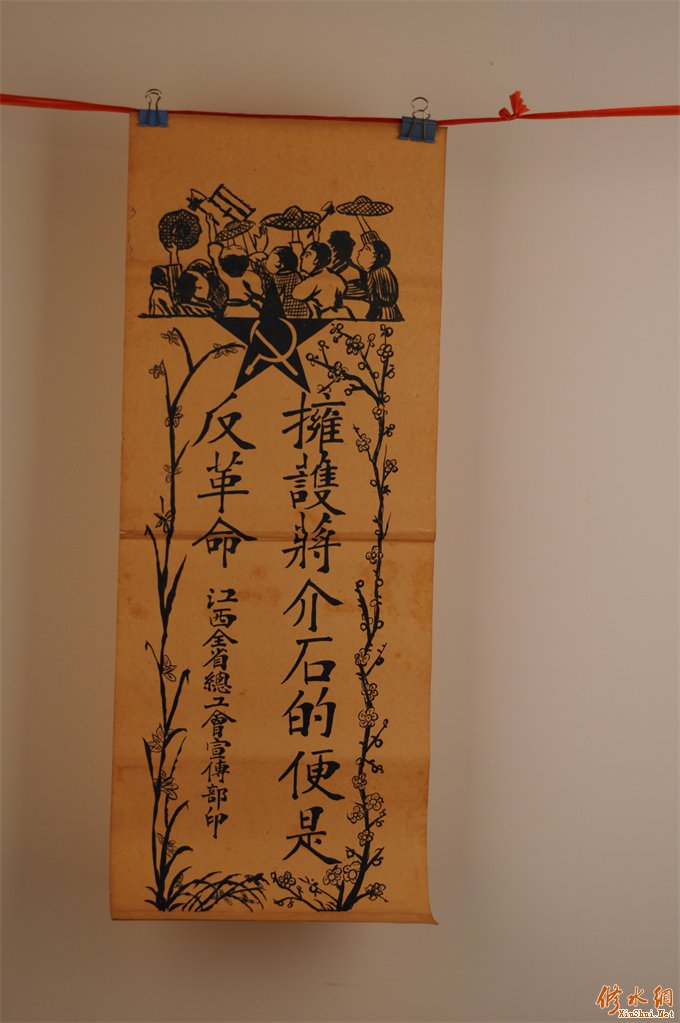 擁護蔣介石的便是
反革命
江西全省總工會宣傳部印
修水網
XiuShui.Net